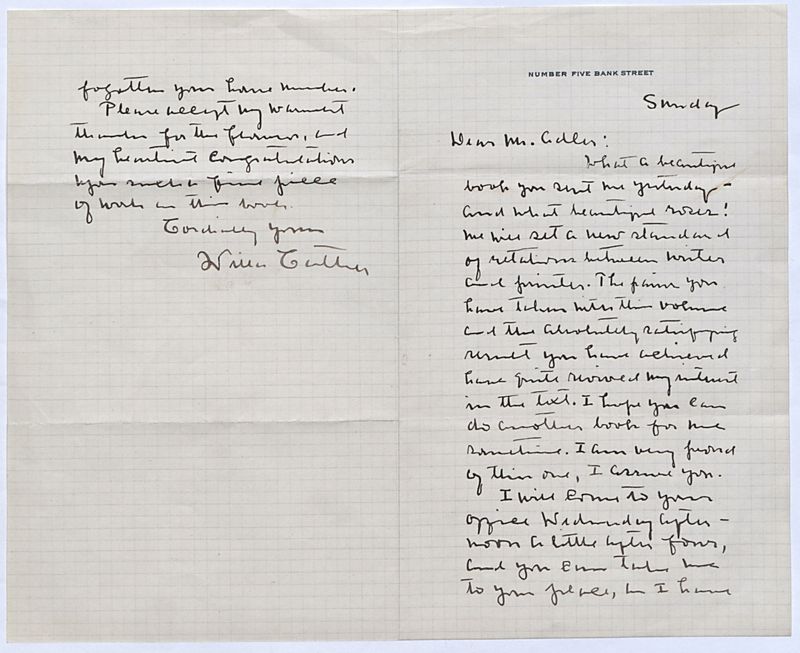 NUMBER FIVE BANK STREET
Sunday
Dear Mr. Adler:
What a beautiful
book you sent me yesterday -
and what beautiful roses!
We will set a new standard
of relations between writer
and printer. The pains you
have taken with this volume
and the absolutely satisfying
result you have achieved
have quite revived my interest
in the text. I hope you can
do another book for me
sometime. I am very proud
of this one, I assure you.
I will come to your
office Wednesday after-
noon a little after four,
and you can take me
to your place, as I have
forgotten your house number.
Please accept my warmest
thanks for the flowers, and
my heartiest congratulations
upon such a fine piece
of work as this book.
Cordially yours
Willa Cather